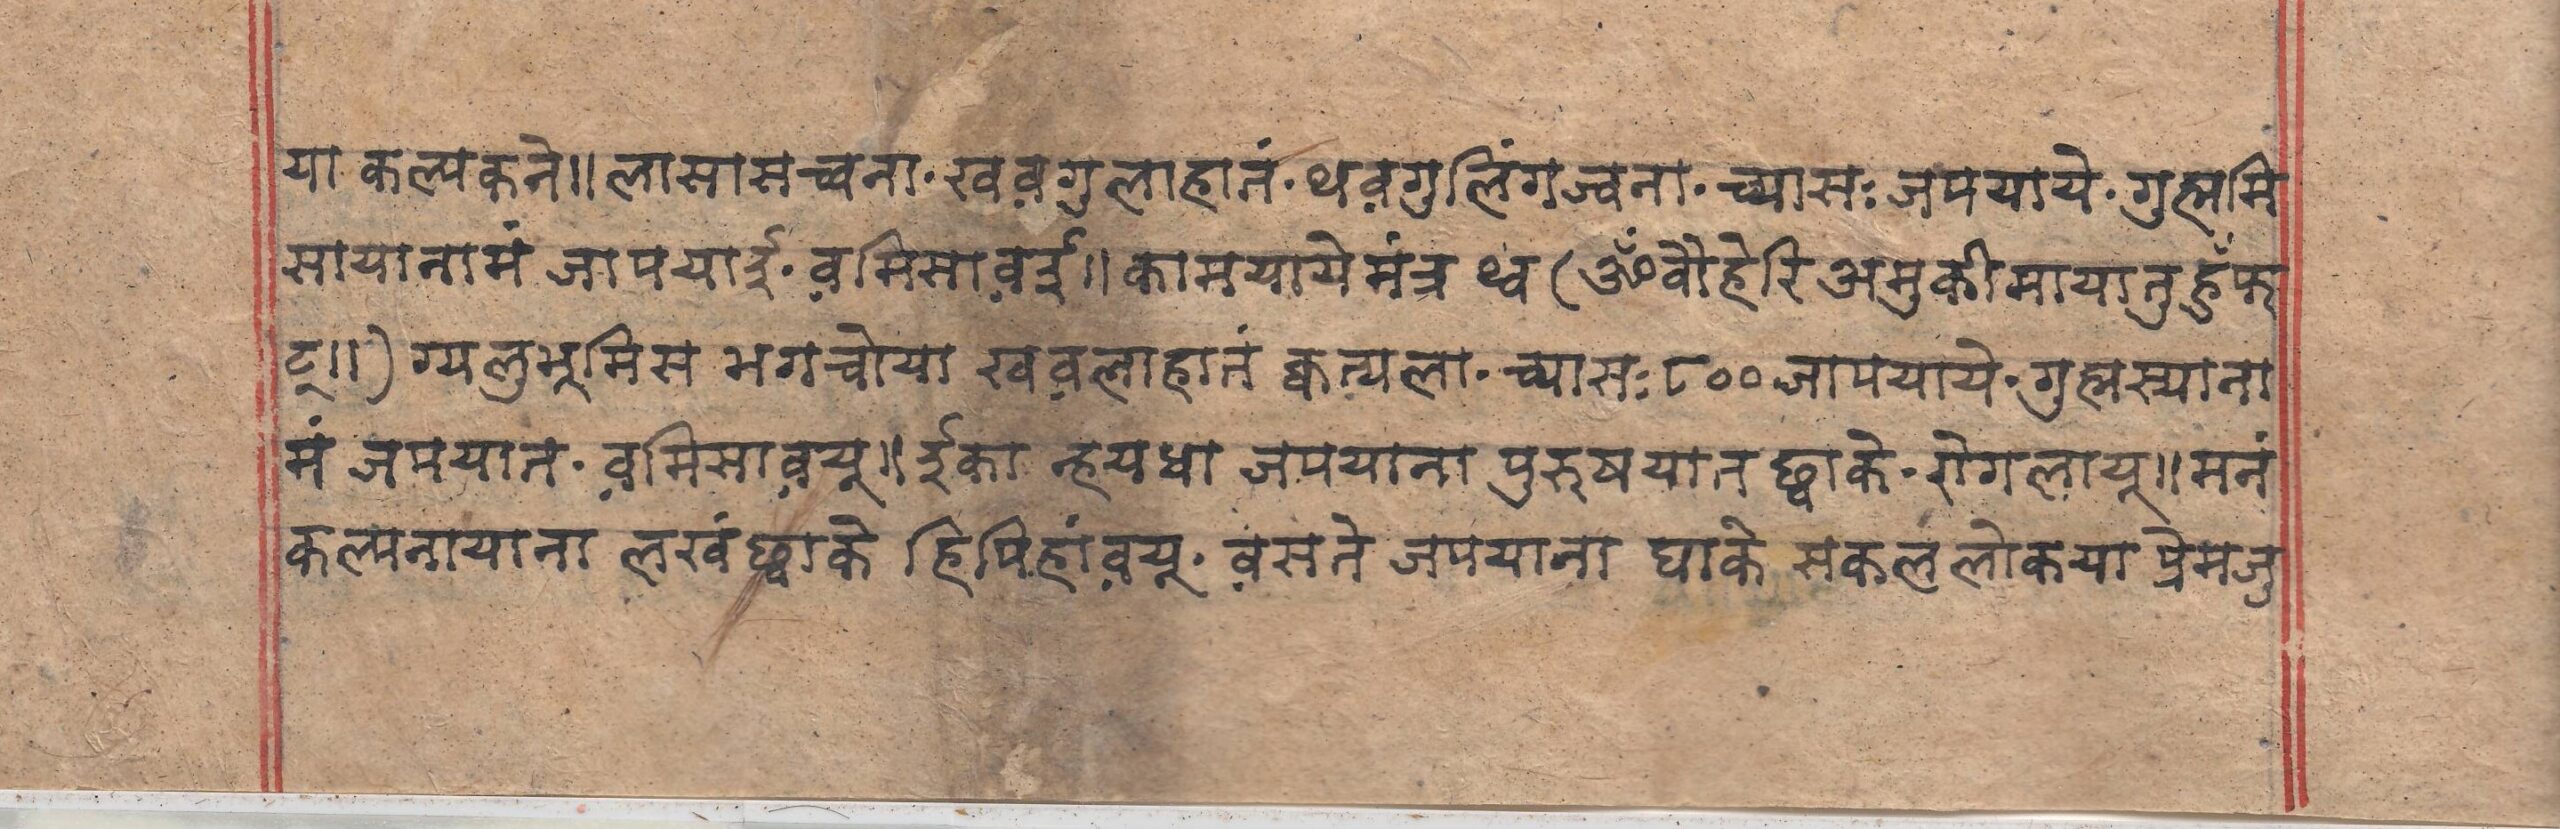 या कल्पकने॥ लासासच्वना· खव़गुलाहातं· थव़गुलिंगज्वना· च्यासः जपयाये· गुह्ममि
सायानामं जापयाई· व़मिसाव़ई॥ कामयायेमंत्र थ्व (ॐ वौहेरि अमुकीमायातु हुँ फ
ट्॥) ग्यलुभूमिस भगच्वोया खव़लाहातं क्वत्यला· च्यासः ८०० जापयाये· गुह्मस्याना
मं जपयात· व़मिसाव़यू॥ ईका न्हयधा जपयाना पुरुषयात छ्वाके· रोगलायू॥ मनं
कल्पनायाना लखंछ्वाके हिपिहांव़यू· व़सते जपयाना घाके सकललोकया प्रेमजु